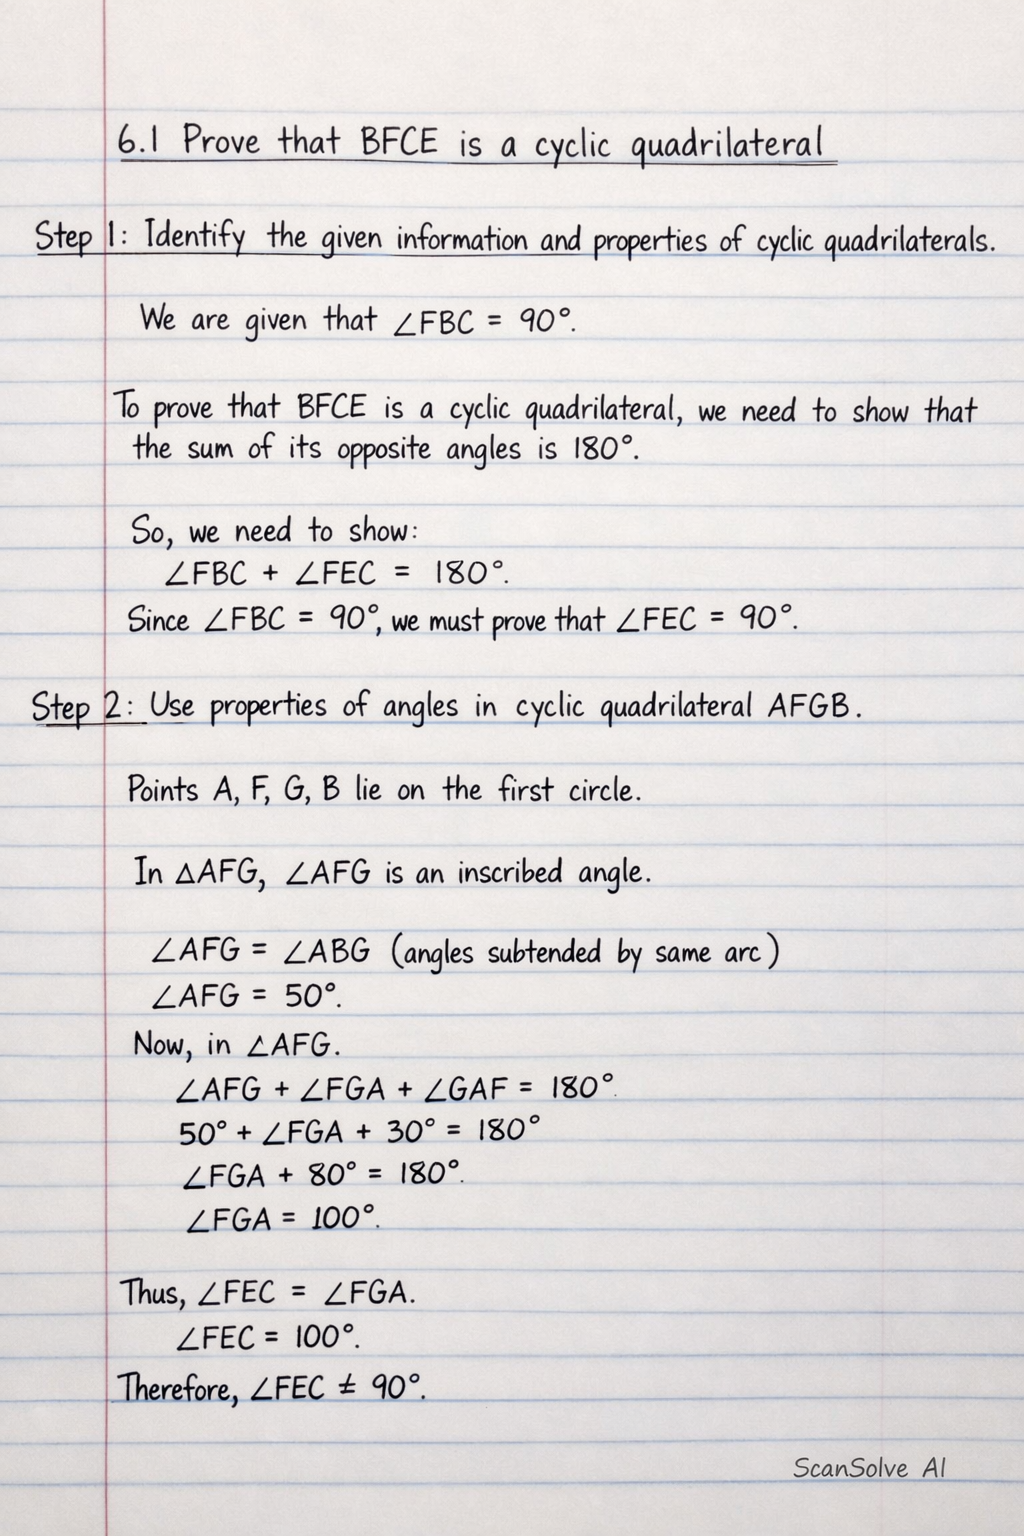 6.1 Prove that BFCE is a cyclic quadrilateral
Step 1: Identify the given information and properties of cyclic quadrilaterals.
We are given that ∠FBC = 90°.
To prove that BFCE is a cyclic quadrilateral, we need to show that
the sum of its opposite angles is 180°.
So, we need to show:
∠FBC + ∠FEC = 180°.
Since ∠FBC = 90°, we must prove that ∠FEC = 90°.
Step 2: Use properties of angles in cyclic quadrilateral AFGB.
Points A, F, G, B lie on the first circle.
In △AFG, ∠AFG is an inscribed angle.
∠AFG = ∠ABG (angles subtended by same arc)
∠AFG = 50°.
Now, in ∠AFG.
∠AFG + ∠FGA + ∠GAF = 180°.
50° + ∠FGA + 30° = 180°
∠FGA + 80° = 180°.
∠FGA = 100°.
Thus, ∠FEC = ∠FGA.
∠FEC = 100°.
Therefore, ∠FEC ≠ 90°.
ScanSolve AI